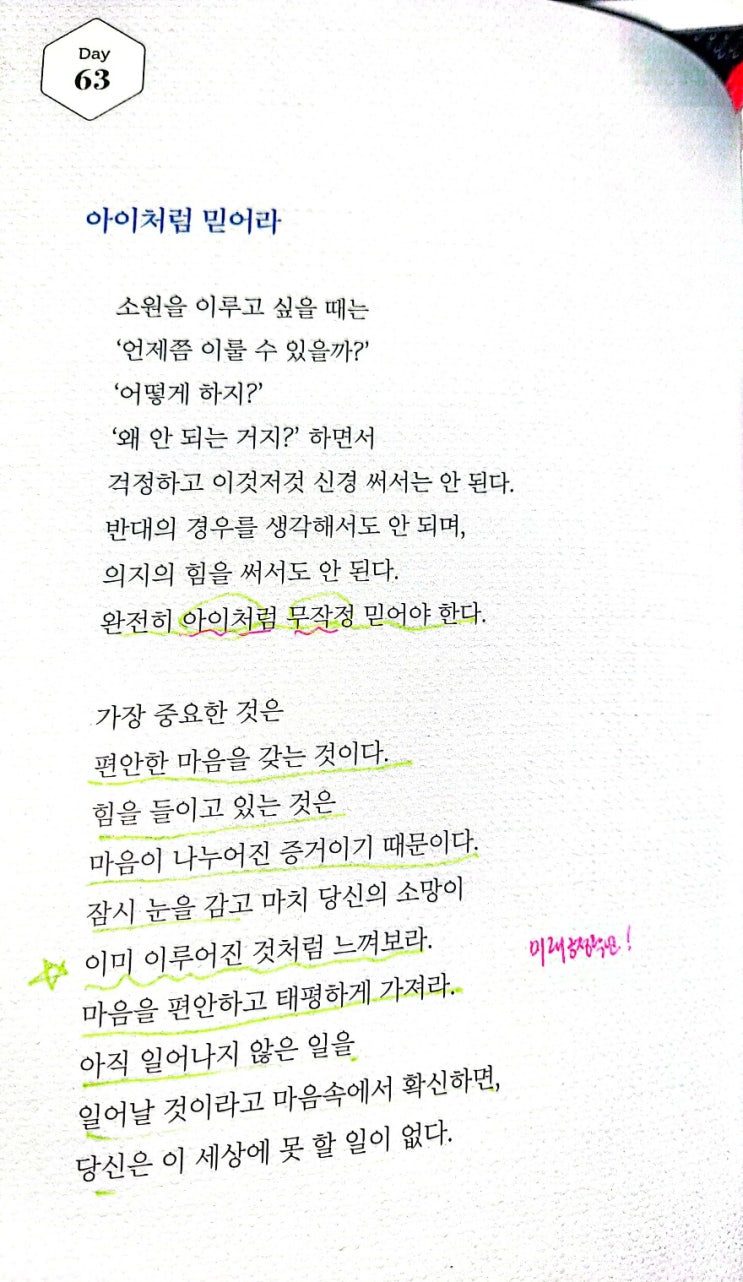 Day
63
아이처럼 믿어라
소원을 이루고 싶을 때는
‘언제쯤 이룰 수 있을까?’
‘어떻게 하지?’
‘왜 안 되는 거지?’ 하면서
걱정하고 이것저것 신경 써서는 안 된다.
반대의 경우를 생각해서도 안 되며,
의지의 힘을 써서도 안 된다.
완전히 아이처럼 무작정 믿어야 한다.
가장 중요한 것은
편안한 마음을 갖는 것이다.
힘을 들이고 있는 것은
마음이 나누어진 증거이기 때문이다.
잠시 눈을 감고 마치 당신의 소망이
이미 이루어진 것처럼 느껴보라.
마음을 편안하고 태평하게 가져라.
아직 일어나지 않은 일을
일어날 것이라고 마음속에서 확신하면,
당신은 이 세상에 못 할 일이 없다.